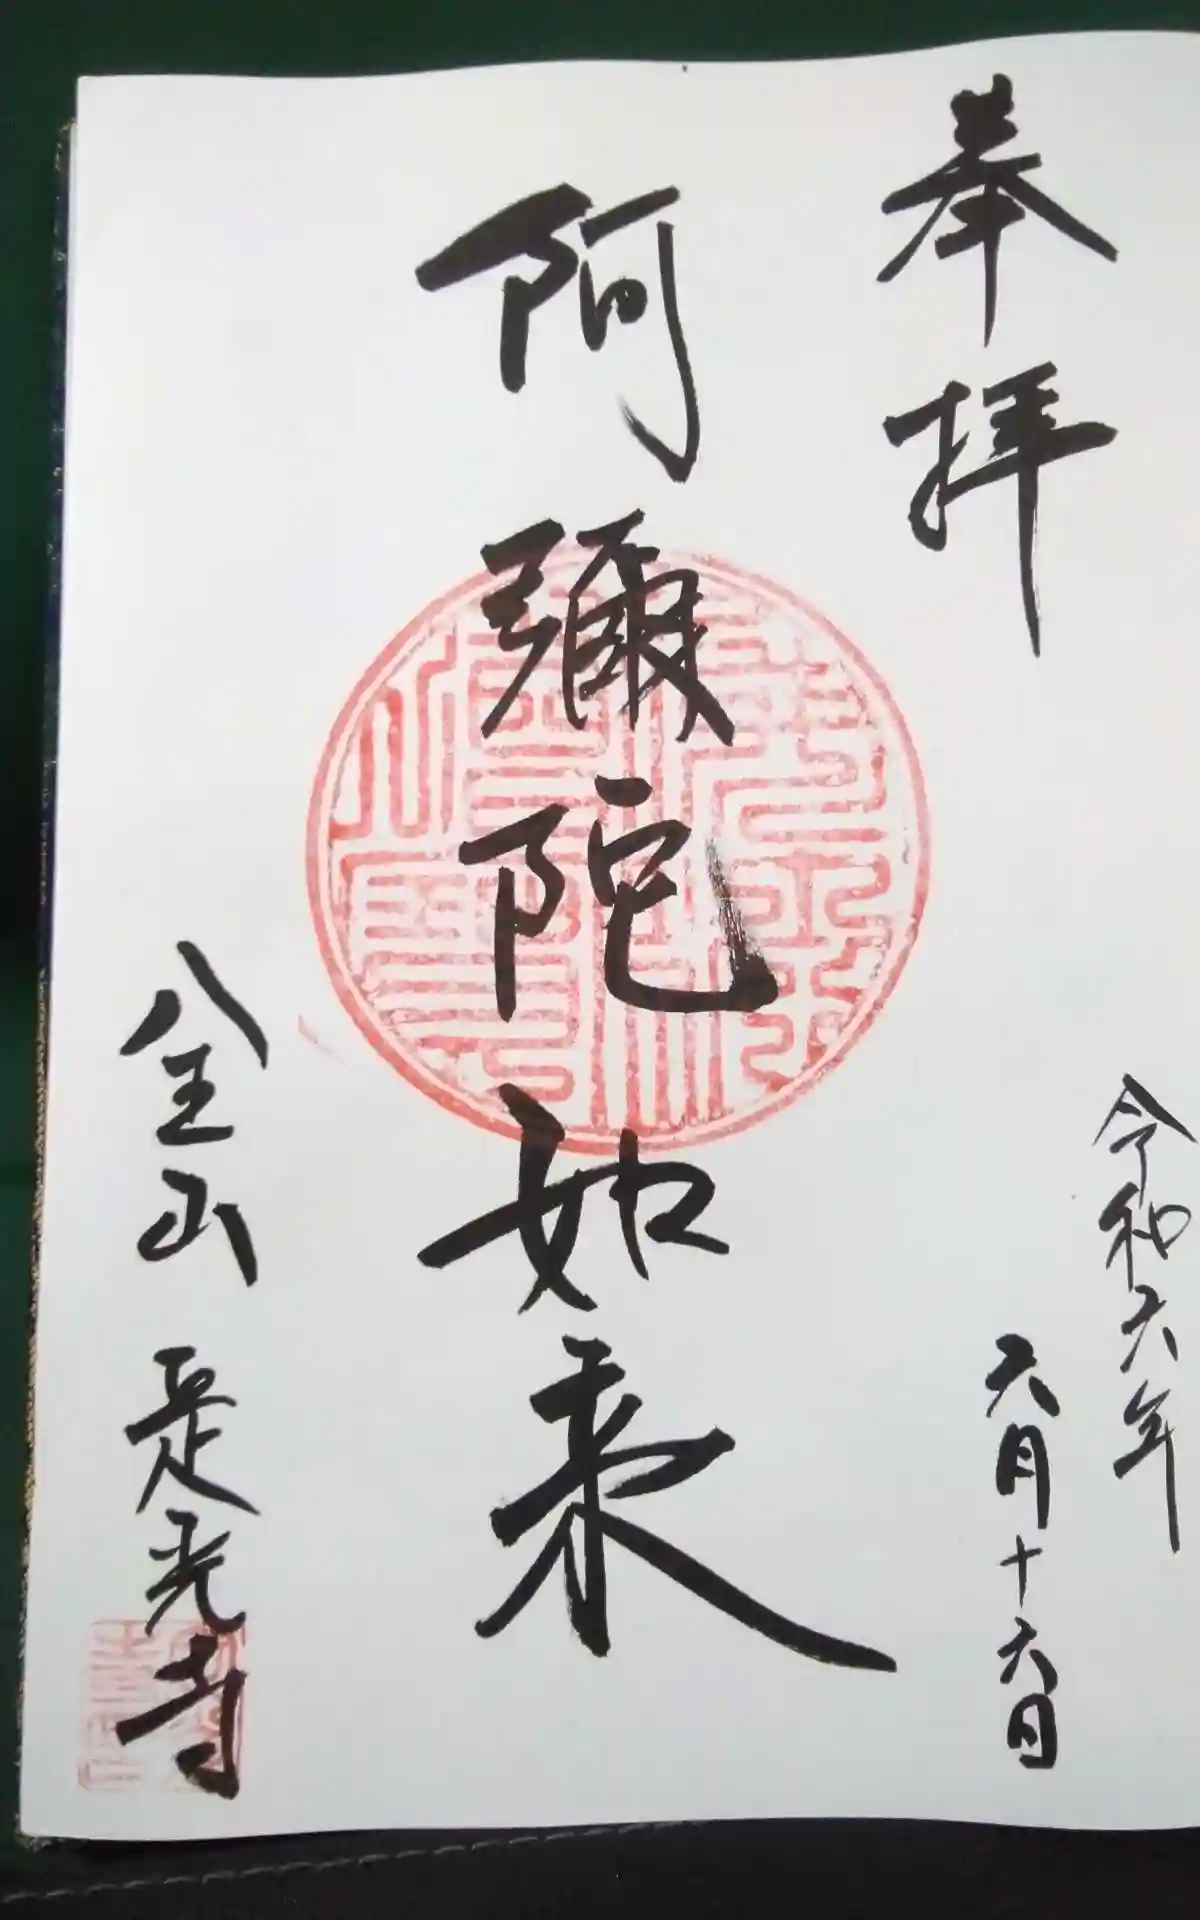 奉拝
令和六年
六月十六日
阿彌陀如来
八王山 是光寺